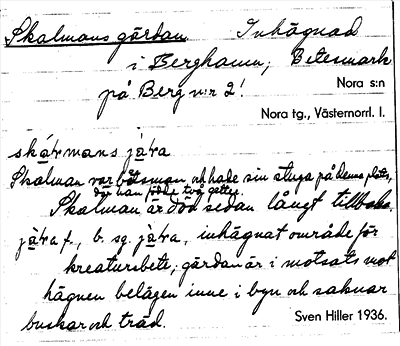 Skalmans gärdan Inhägnad
i Berghamn; Betesmark
på Berg n:r 2!
Nora s:n
Nora tg., Västernorrl. l.
skármans jàra
Skalman var båtsman och hade sin stuga på denna plats,
där han födde två getter.
Skalman är död sedan långt tillbaka.
jàra f., b. sg. jàra, inhägnat område för
kreatursbete; gärdan är i motsats mot
hägnen belägen inne i byn och saknar
buskar och träd.
Sven Hiller 1936.